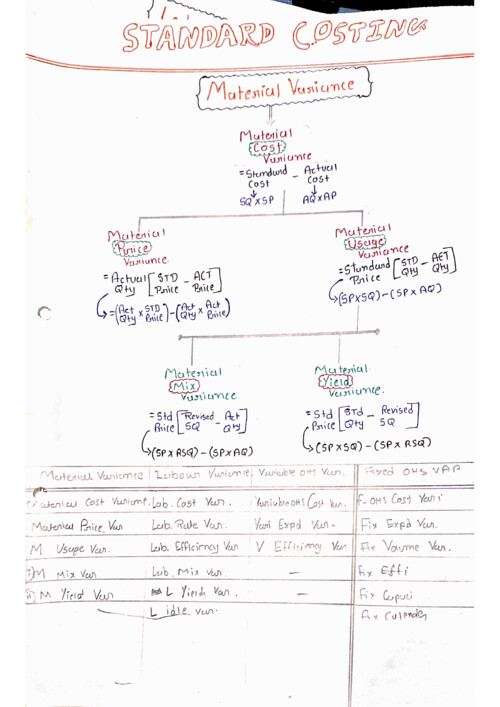 STANDARD COSTING
Material Variance
Material
Cost
Variance
= Standard Cost - Actual Cost
SQ x SP AQ x AP
Material
Price
Variance.
= Actual Qty [STD Price - ACT Price]
= (Act Qty x STD Price) - (Act Qty x Act Price)
Material
Usage
Variance
= Standard Price [STD Qty - AET Qty]
(SP x SQ) - (SP x AQ)
Material
Mix
Variance
= Std Price [Revised SQ - Act Qty]
(SP x RSQ) - (SP x AQ)
Material
Yield
Variance.
= Std Price [STD Qty - Revised SQ]
(SP x SQ) - (SP x RSQ)
Material Variance Labour Variance Variable OHS Var. Fixed OHS VAR
Material Cost Variance Lab. Cost Var. Variable OHS Cost Var. F. OHS Cost Vari
Material Price Var Lab. Rate Var. Vari Expd Var. Fix Expd Var.
M Usage Var. Lab. Efficiency Var V Efficiency Var Fix Volume Var.
i) M Mix Var Lab. Mix Var. - fix Effi
ii) M Yield Var L Yield Var. - Fix Capaci
L idle Var. Fix Calender